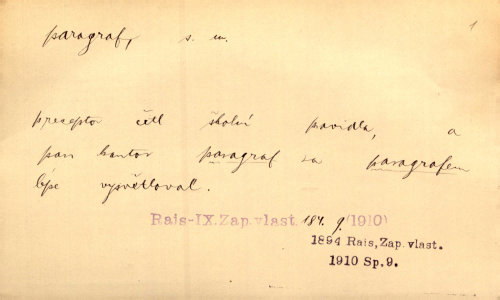 paragraf, s. m.
1
preceptor četl školní pravidla, a
pan kantor paragraf za paragrafem
lépe vysvětloval.
Rais-IX.Zap.vlast. 184. 9/1910)
1894 Rais, Zap. vlast.
1910 Sp. 9.